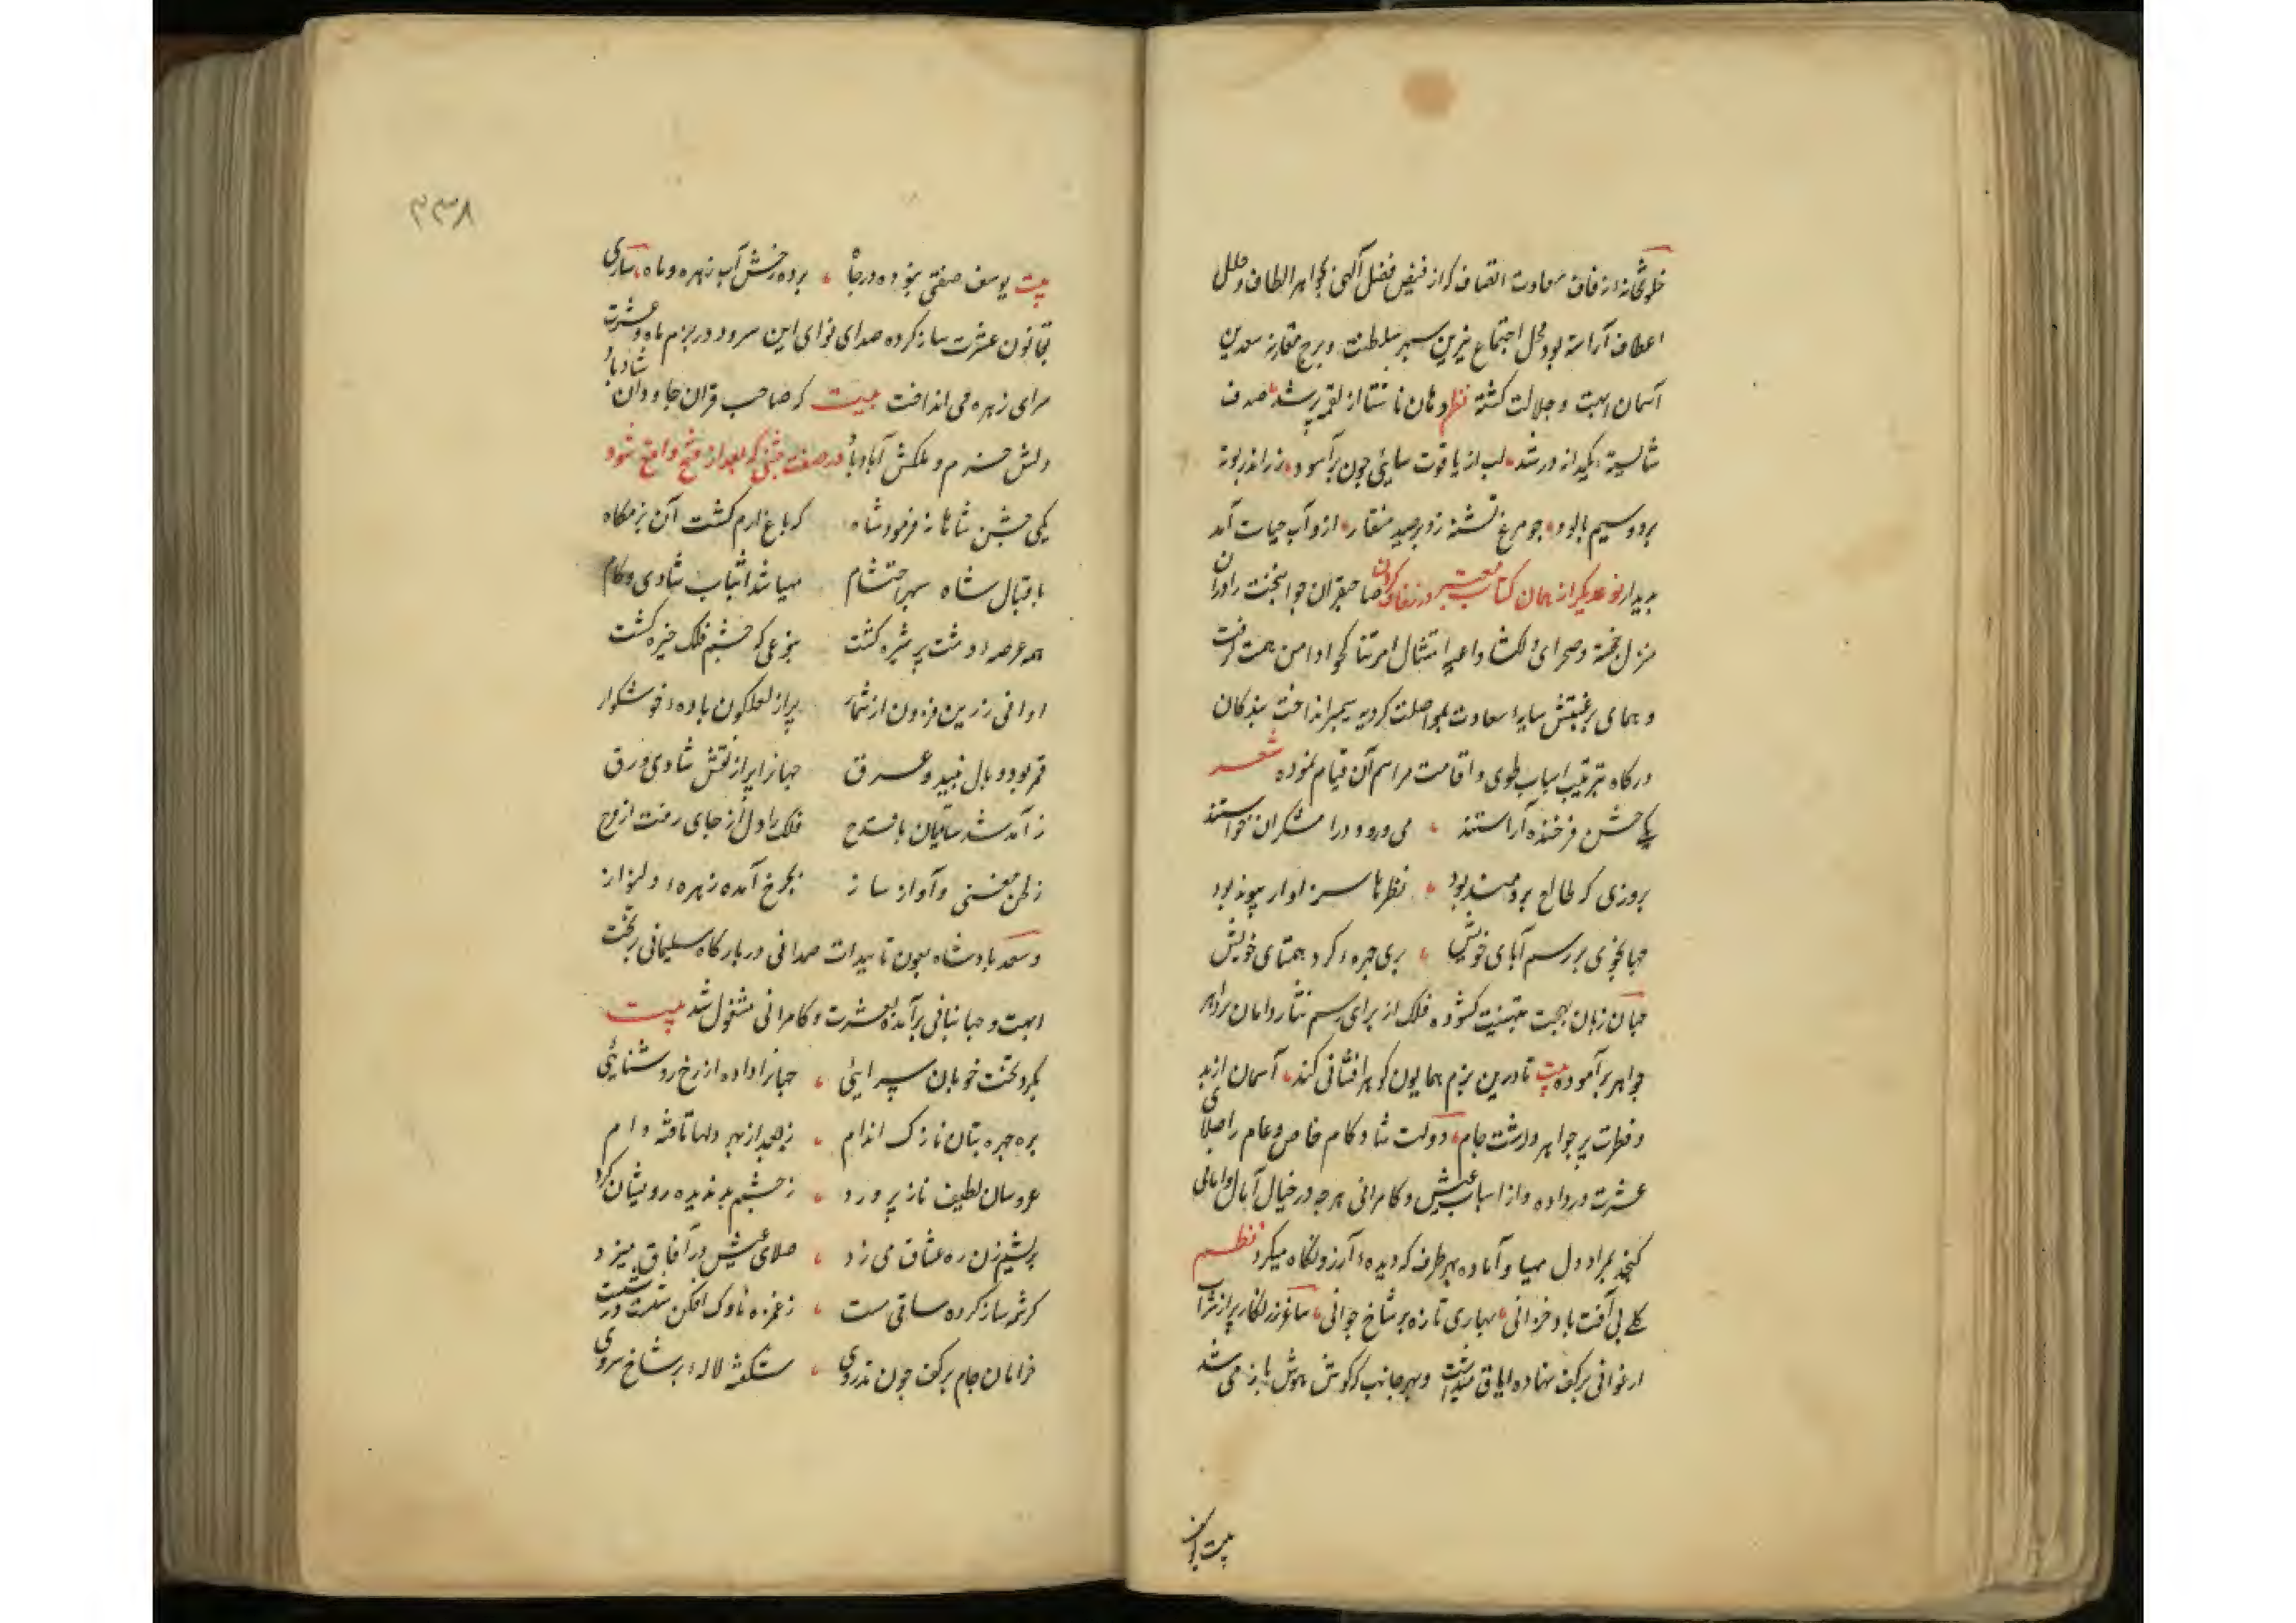 خلوتخانه زفاف سعادت اتصاف که از فیض فضل آلهی بجواهر الطاف و حلل
اعطاف آراسته بود محل اجتماع نیرین سپهر سلطنت و برج مقارنه سعدین
آسمان ابهت و جلالت کشته نظم دهان ناشتا از لقمه پر شد صدف
شایسته یکدانه در شد لب از یاقوت سایی چون برآسود زر اندر بوته
برد و سیم پالود چو مرغ تشنه زد بر صید منقار ازو آب حیات آمد
پدیدار نوعدیکر از همان کتاب در زفاف کردن صاحبقران جوانبخت را در ان
منزل خجسته و صحرای دلکشا داعیه امتثال امر تناکحوا دامن همت کرفت
و همای رغبتش سایه سعادت بمواصلت کردیه انداخت بندکان
درکاه بترتیب اسباب طوی و اقامت مراسم آن قیام نموده شعر
یکی جشن فرخنده آراستند می و رود و رامشکران خواستند
بروزی که طالع برومند بود نظرها سزاوار پیوند بود
جهانجوی بر رسم آبای خویش پری چهره کرد همتای خویش
جهان زبان بهجت بتهنیت کشوده فلک از برای رسم نثار دامان پر از
جواهر برآموده بیت تا درین بزم همایون کوهر افشانی کند آسمان از بد
و فطرت پر جواهر داشت جام دولت شادکام خاص و عام را صلای
عشرت در داده و از اسباب عیش و کامرانی هرچه در خیال آمال و امانی
کنجد بمراد دل مهیا و آماده بهر طرف که دیده آرزو نکاه میکرد نظم
کلی بی آفت باد خزانی بهاری تازه بر شاخ جوانی ساغر زرنکار پر از شراب
ارغوانی بر کف نهاده ایاق میداشت و بهر جانب که کوش هوش باز می شد
بیت یوسف
۳۳۸
بیت یوسف صفتی بخوده در جا برده رخش آب زهره و ماه سازی
بقانون عشرت ساز کرده صدای نوای این سرود در بزم ماه و عشرت
سرای زهره می انداخت بیت که صاحب قران جاودان شاد باد
دلش خرم و ملکش آباد باد در صفت جشنی که بعد از فتح واقع شود
یکی جشن شاهانه فرمود شاه که باغ ارم کشت آن بزمکاه
باقبال شاه سپهر احتشام مهیا شد اسباب شادی و کام
همه عرصه دشت پر شیره کشت بنوعی که چشم فلک خیره کشت
اوانی زرین فزون از شمار پر از لعلکون باده خوشکوار
قمر بود و بال نبید و عرق جهانرا پر از نقش شادی ورق
ز آمد شد ساقیان با قدح فلک را دل از جای رفت از فرح
ز لحن مغنی و آواز ساز بچرخ آمده زهره دلنواز
و سعد پادشاه بعون تاییدات صمدانی در بارکاه سلیمانی بر تخت
ابهت و جهانبانی برآمده بعشرت و کامرانی مشغول شد بیت
بکرد تخت خوبان سرایی جهانرا داده از رخ روشنایی
بره چهره بتان نازک اندام ز جعد از بهر دلها تافته دام
عروسان لطیف ناز پرورد ز چشم بد ندیده رویشان کرد
بریشم زن ره عشاق می زد صلای عیش در آفاق میزد
کرشمه ساز کرده ساقی مست ز غمزه ناوک افکن شست در شست
خرامان جام بر کف چون تذروی شکفته لاله بر شاخ سروی